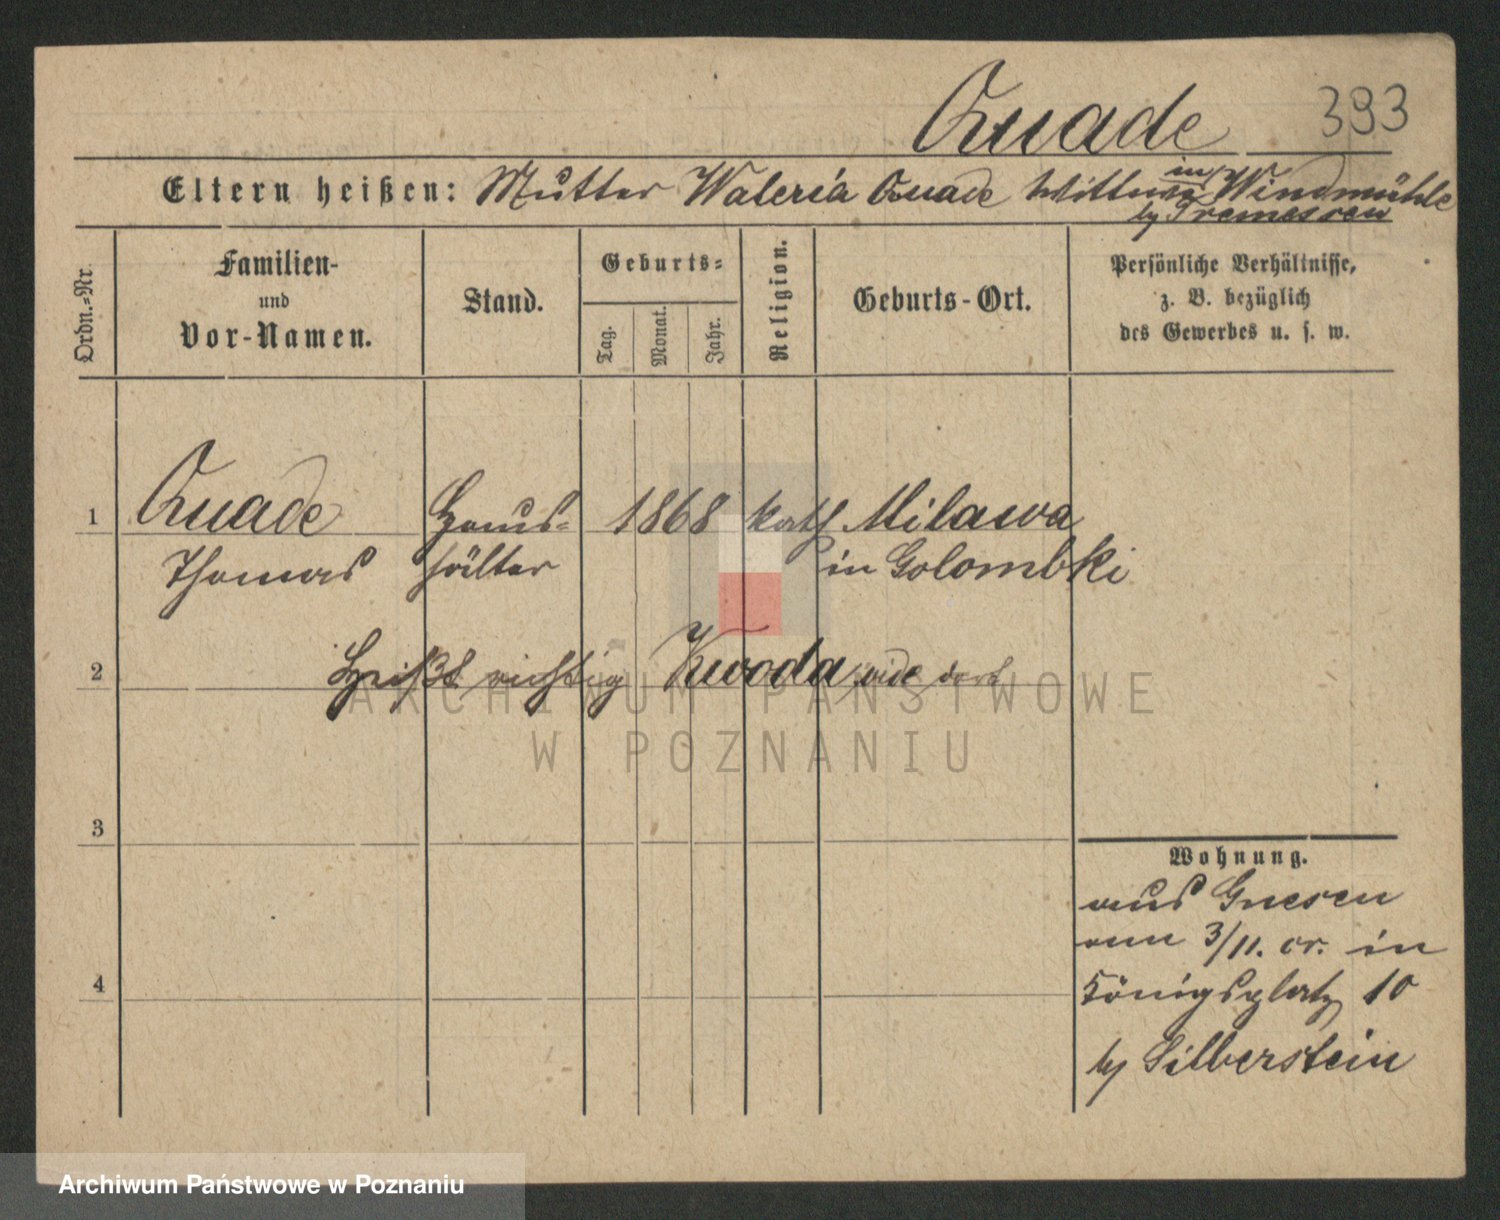 Quade 393
Eltern heißen: Mutter Waleria Quade Wittwe in Windmühle
by Tremessen
Ordn.=Nr.
Familien-
und
Vor-Namen.
Stand.
Geburts=
Tag.
Monat.
Jahr.
Religion.
Geburts-Ort.
Persönliche Verhältnisse,
z. B. bezüglich
des Gewerbes u. s. w.
1 Quade Haus= 1868 kath Milawa
Thomas hälter in Golombki
2 Heißt richtig Kwoda vide dort
3
4
Wohnung.
aus Gnesen
am 3/11. cr. in
Königsplatz 10
by Silberstein
ARCHIWUM PAŃSTWOWE
W POZNANIU
Archiwum Państwowe w Poznaniu